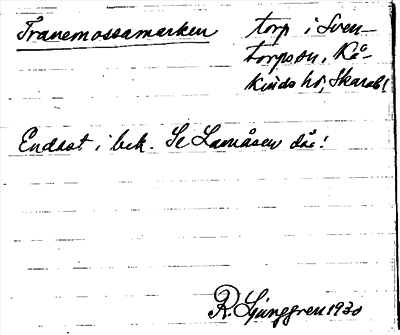 Tranemossamarken torp i Sven-
torps sn, Kå-
kinds hd, Skarab. l
Endast i bek. Se Lamåsen där!
R. Ljunggren 1930